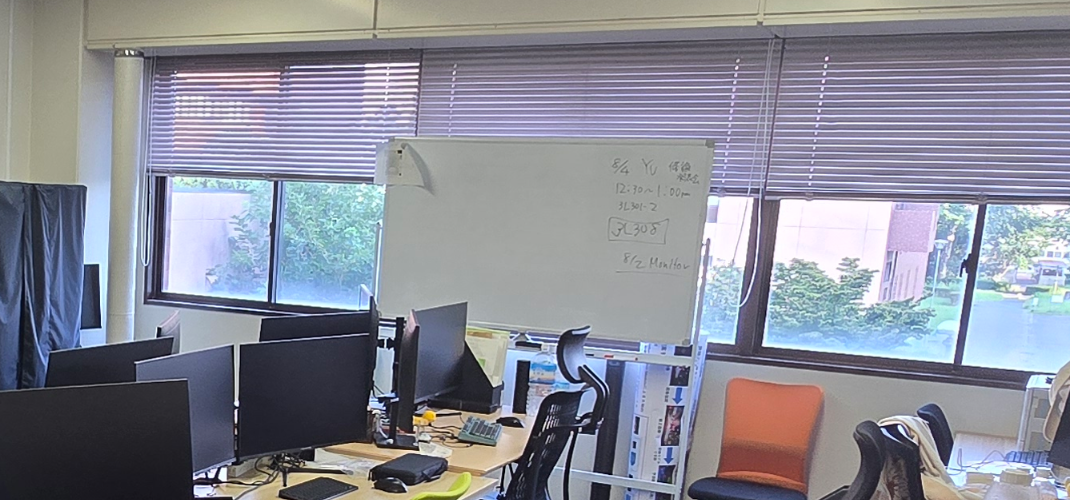 8/4 Yu 修論
12:30~1:00pm
3L301-2
3L308
8/2 Monitor